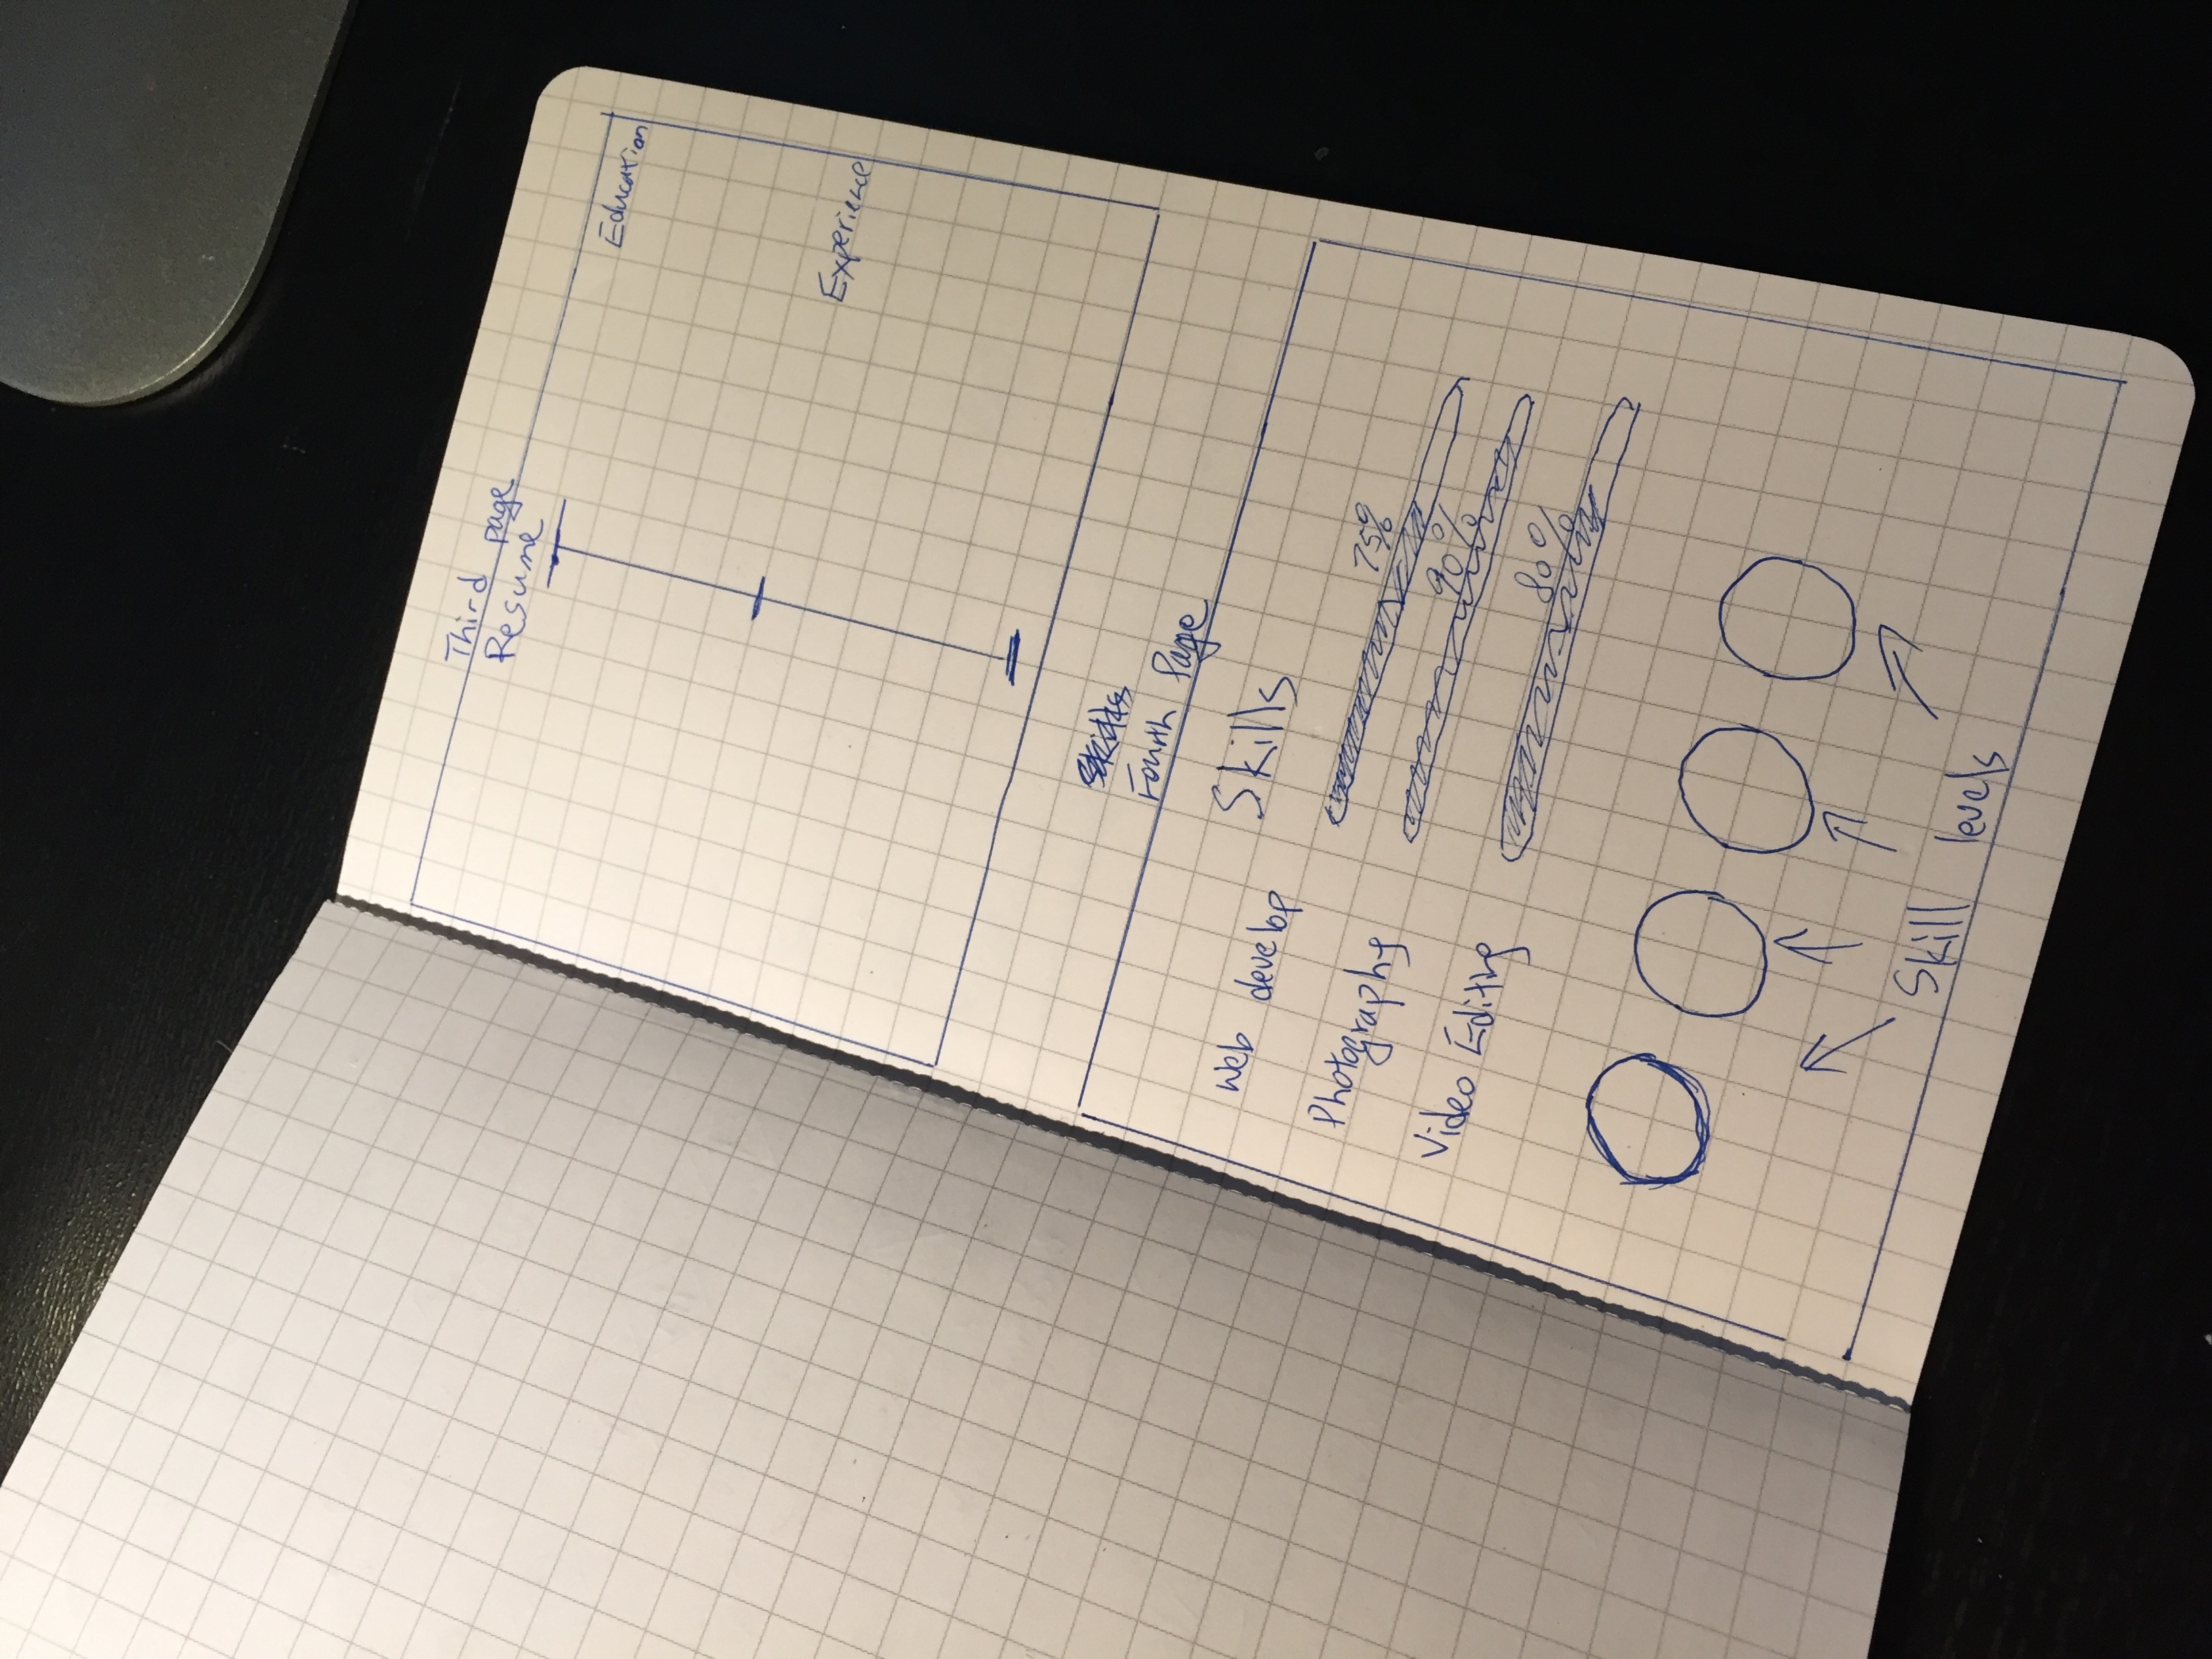 Third page
Resume
Education
Experience
Fourth Page
Skills
Web develop
75%
Photography
90%
Video Editing
80%
Skill levels